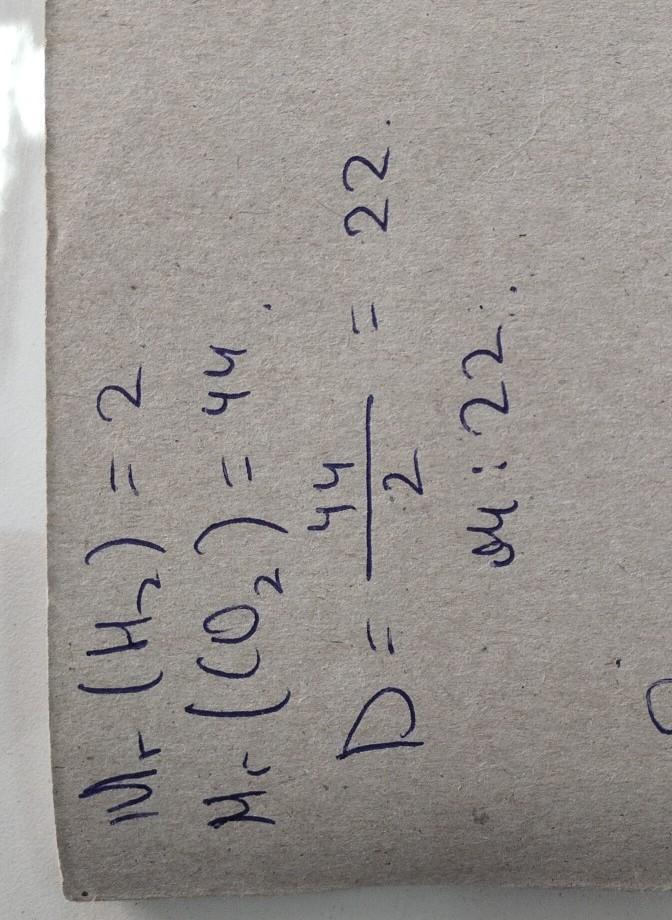 Mr (H2) = 2
Mr (CO2) = 44.
D = 44/2 = 22.
: 22.